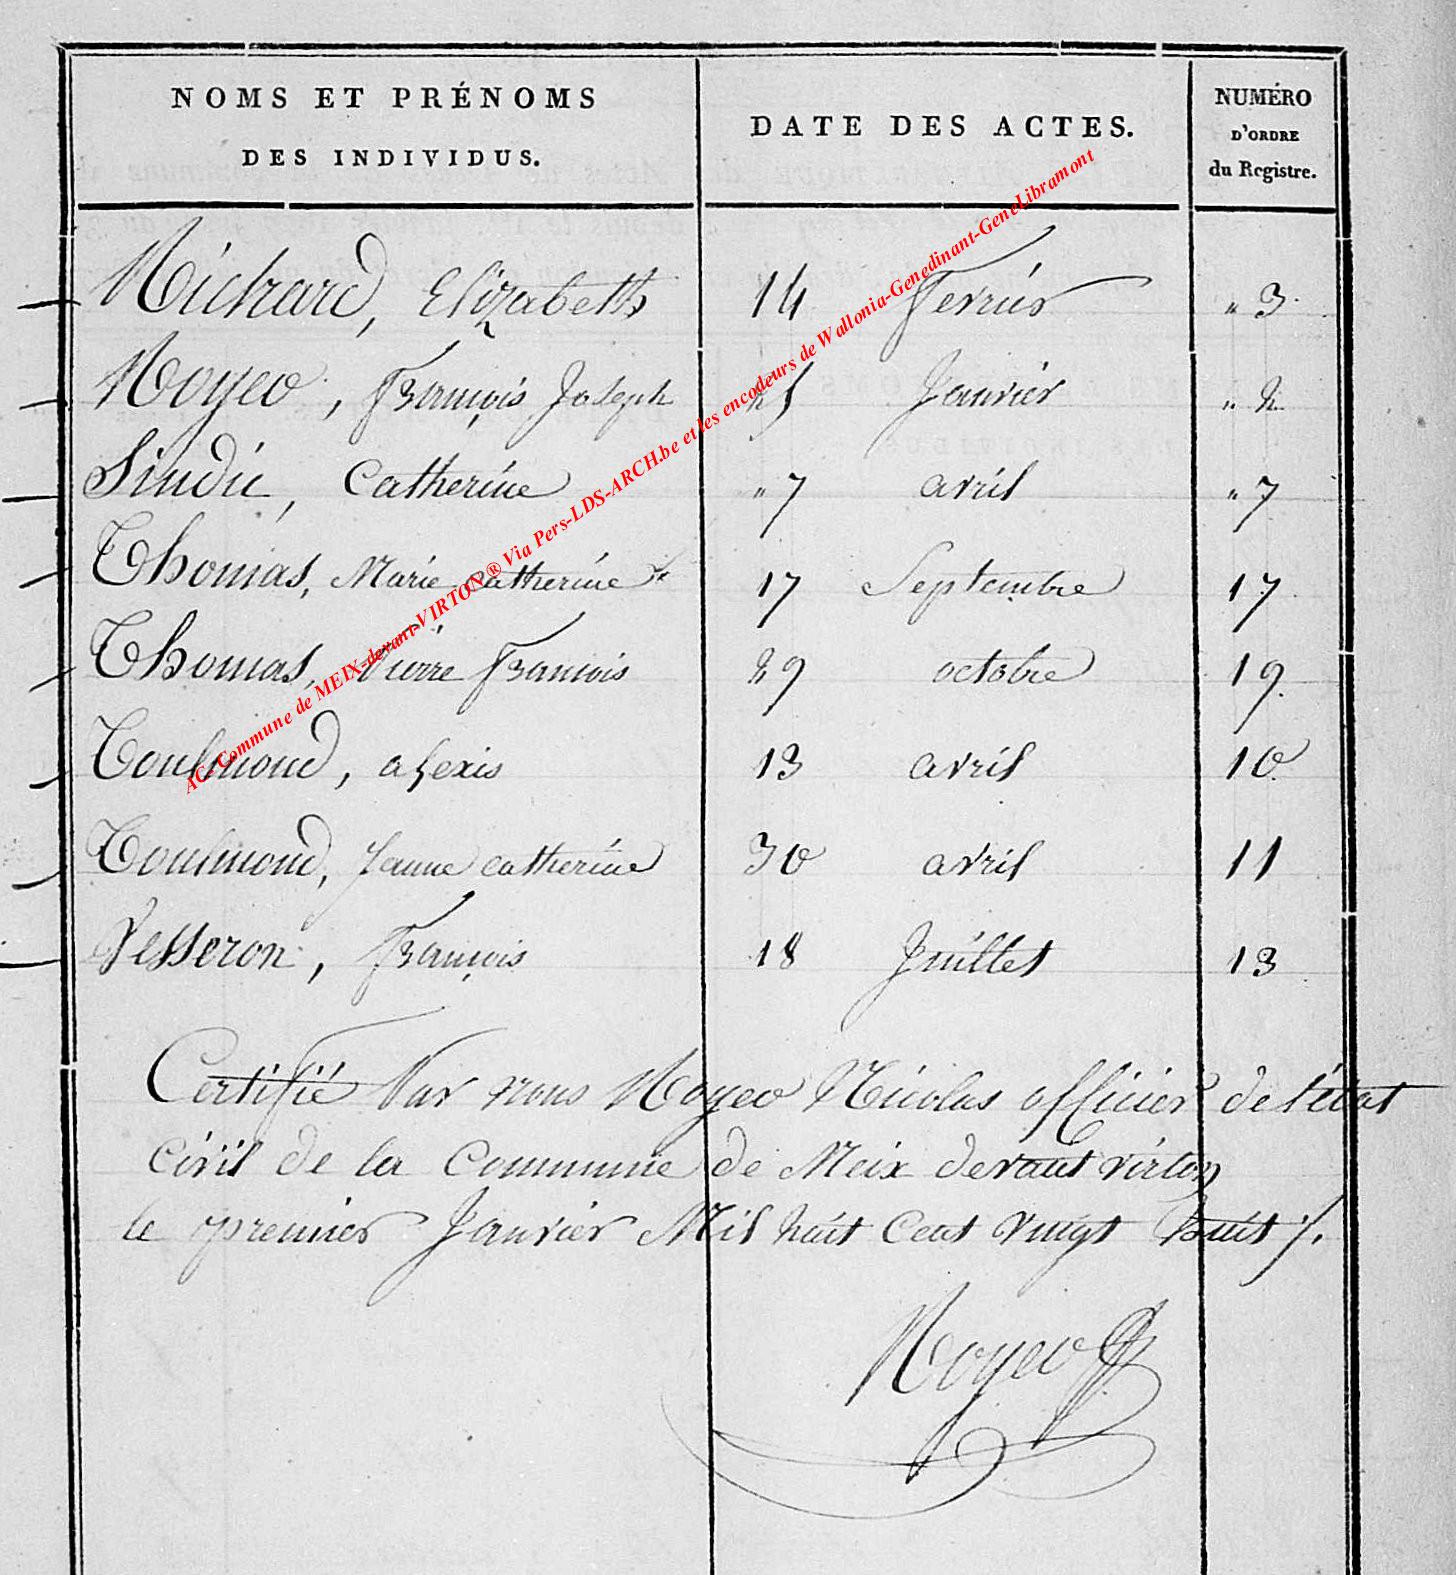 NOMS ET PRÉNOMS
DES INDIVIDUS.
DATE DES ACTES.
NUMÉRO
D'ORDRE
du Registre.
Michard, Elizabeth 14 Fevrier " 3
Noyeo, François Joseph 25 Janvier " 2
Sindic, Catherine " 7 avril " 7
Thomas, Marie Catherine 17 Septembre 17
Thomas, Pierre François 29 octobre 19
Toulmond, alexis 13 avril 10
Toulmond, Jeanne catherine 30 avril 11
Vesseron, François 18 Juillet 13
Certifié Par nous Noyeo Nicolas officier de l'état
civil de la Commune de Meix devant virton
le premier Janvier Mil huit Cent vingt huit /.
Noyeo
AC-Commune de MEIX-devant-VIRTON® Via Pers-LDS-ARCH.be et les encodeurs de Wallonia-Genedinant-GeneLibramont